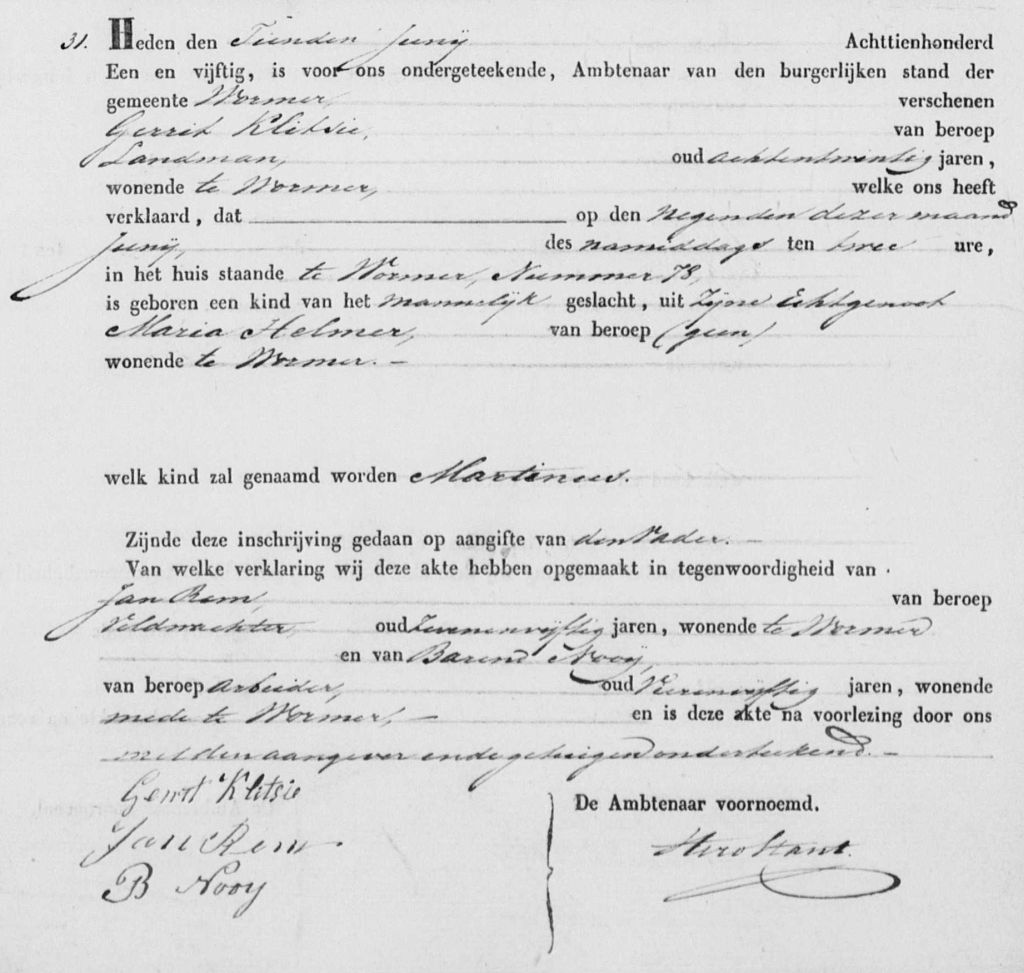 31. Heden den Tienden Juny Achttienhonderd
Een en vijftig, is voor ons ondergeteekende, Ambtenaar van den burgerlijken stand der
gemeente Wormer, verschenen
Gerrit Klitsie, van beroep
Landman, oud achtentwintig jaren,
wonende te Wormer, welke ons heeft
verklaard, dat op den negenden dezer maand
Juny, des namiddags ten twee ure,
in het huis staande te Wormer, Nummer 78,
is geboren een kind van het mannelyk geslacht, uit zyne Echtgenoot
Maria Helmer, van beroep (geen)
wonende te Wormer. –
welk kind zal genaamd worden Martinus.
Zijnde deze inschrijving gedaan op aangifte van den Vader. –
Van welke verklaring wij deze akte hebben opgemaakt in tegenwoordigheid van
Jan Rem, van beroep
Veldwachter, oud Zevenenvyftig jaren, wonende te Wormer
en van Barend Nooy,
van beroep arbeider, oud Vierenvyftig jaren, wonende
mede te Wormer, – en is deze akte na voorlezing door ons
met den aangever en de getuigen onderteekend. –
Gerrit Klitsie
De Ambtenaar voornoemd.
Jan Rem
B Nooy